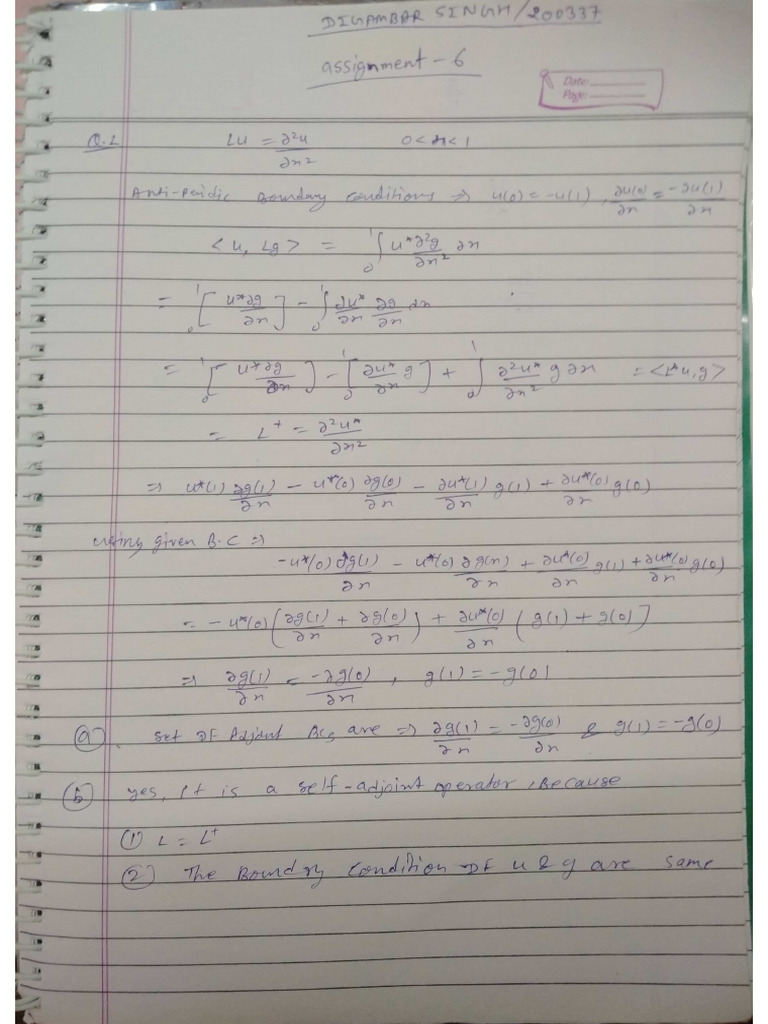 DIGAMBAR SINGH/200337
assignment-6
Date:
Page:
Q.1 Lu = ∂²u/∂x² 0<x<1
Anti-Peridic Boundary conditions ⇒ u(0) = -u(1), ∂u(0)/∂x = -∂u(1)/∂x
<u, Lg> = ₀∫¹ u* ∂²g/∂x² ∂x
= ₀¹[u*∂g/∂x] - ₀∫¹ ∂u*/∂x ∂g/∂x dx
= ₀¹[u*∂g/∂x] - ₀¹[∂u*/∂x g] + ₀∫¹ ∂²u*/∂x² g ∂x = <L*u, g>
= L⁺ = ∂²u*/∂x²
⇒ u*(1) ∂g(1)/∂x - u*(0) ∂g(0)/∂x - ∂u*(1)/∂x g(1) + ∂u*(0)/∂x g(0)
using given B.C ⇒
-u*(0) ∂g(1)/∂x - u*(0) ∂g(x)/∂x + ∂u*(0)/∂x g(1) + ∂u*(0)/∂x g(0)
= -u*(0) (∂g(1)/∂x + ∂g(0)/∂x) + ∂u*(0)/∂x (g(1) + g(0)]
⇒ ∂g(1)/∂x = -∂g(0)/∂x , g(1) = -g(0)
(a). Set OF Adjoint BCs are ⇒ ∂g(1)/∂x = -∂g(0)/∂x & g(1) = -g(0)
(b) Yes, it is a self-adjoint operator, Because
(1) L = L⁺
(2) The Boundry Condition OF u & g are same